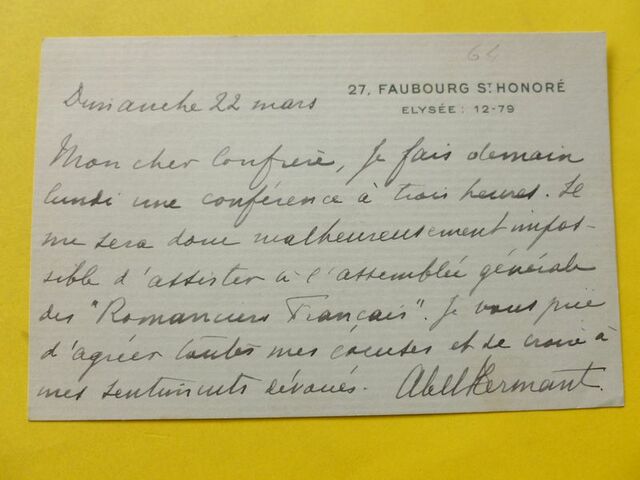 64
27, FAUBOURG ST HONORÉ
ELYSÉE : 12-79
Dimanche 22 mars
Mon cher Confrère, Je fais demain
lundi une conférence à trois heures. Il
me sera donc malheureusement impos-
sible d'assister à l'assemblée générale
des "Romanciers Français". Je vous prie
d'agréer toutes mes excuses et de croire à
mes sentiments dévoués. Abel Hermant.